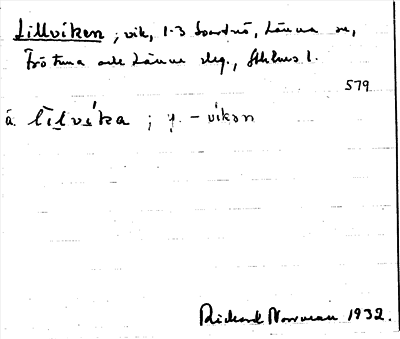 Lillviken ; vik, 1-3 Svartnö, Länna sn,
Frötuna och Länna slg., Sthlms l.
579
ä. lilvika ; y. -vikən
Rickard Norrman 1932.